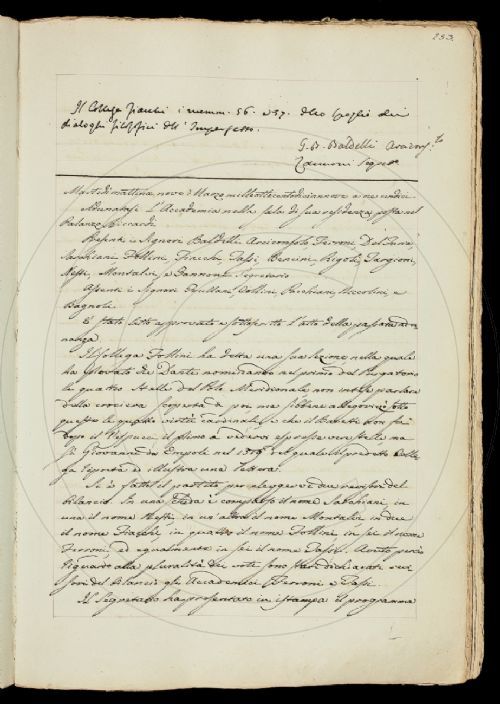 233.
Il Collega Fiacchi i numm. 56. e 57. dello spoglio dei
dialoghi filosofici dell' Imperfetto.
G. B. Baldelli Arciconsolo
Zannoni Segret.
Martedì mattina nove Marzo milleottocentodiciannove a ore undici
Adunatasi l'Accademia nella sala di sua residenza posta nel
Palazzo Riccardi
Presenti i Signori Baldelli Arciconsolo, Ferroni, Del Furia,
Sarchiani, Follini, Fiacchi, Tassi, Bencini, Rigoli, Targioni,
Nesti, Montalvi, e Zannoni Segretario
Assenti i Signori Grullani, Collini, Pacchiani, Niccolini, e
Bagnoli.
È stato letto approvato e sottoscritto l'atto della passata adu
nanza.
Il Collega Follini ha letta una sua lezione nella quale
ha mostrato che Dante nominando nel primo del Purgatorio
le quattro stelle del Polo Meridionale non intese parlare
della crociera scoperta di poi ma sibbene allegorizzò sotto
queste le quattro virtù cardinali, e che il
dopo il Vespucci il primo a vedere espresse vere stelle ma
fu Giovanni da Empoli nel 1503 del quale il predetto Colle
ga riporta e illustra una lettera.
Si è fatto il partito per eleggere i due revisori del
bilancio. In una scheda è comparso il nome Sarchiani, in
una il nome Nesti, in un'altra il nome Montalvi, in due
il nome Fiacchi, in quattro il nome Follini, in sei il nome
Ferroni, ed egualmente in sei il nome Tassi. Avuto perciò
riguardo alla pluralità dei voti sono stati dichiarati revi
sori del bilancio gli Accademici Ferroni e Tassi.
Il Segretario ha presentato in istampa il programma